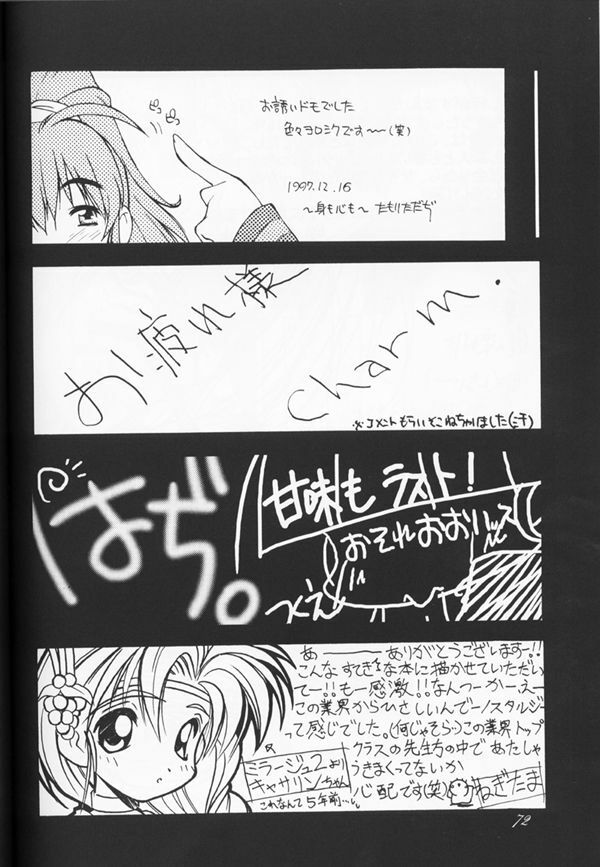 ピッ
ピッ
お誘いドモでした
色々ヨロシクです〜〜(笑)
1997.12.16
〜身も心も〜 たもりただぢ
お疲れ様
charm.
※コメントもらいそこねちゃいました
はぢ。
甘味も ラスト!
おそれおおいッス
つくえ
あ———ありがとうございますー!!
こんな すてきな本に描かせていただい
てー!!もー感激!!なんつーかーえー
この業界からひさしいんでーノスタルジー
って感じでした。(何じゃそら)この業界トップ
クラスの先生坊の中で あたしゃ
うきまくってないか
心配です(笑) ねぎたま
ミラージュ2より
キャサリンちゃん
これなんて5年前…
72